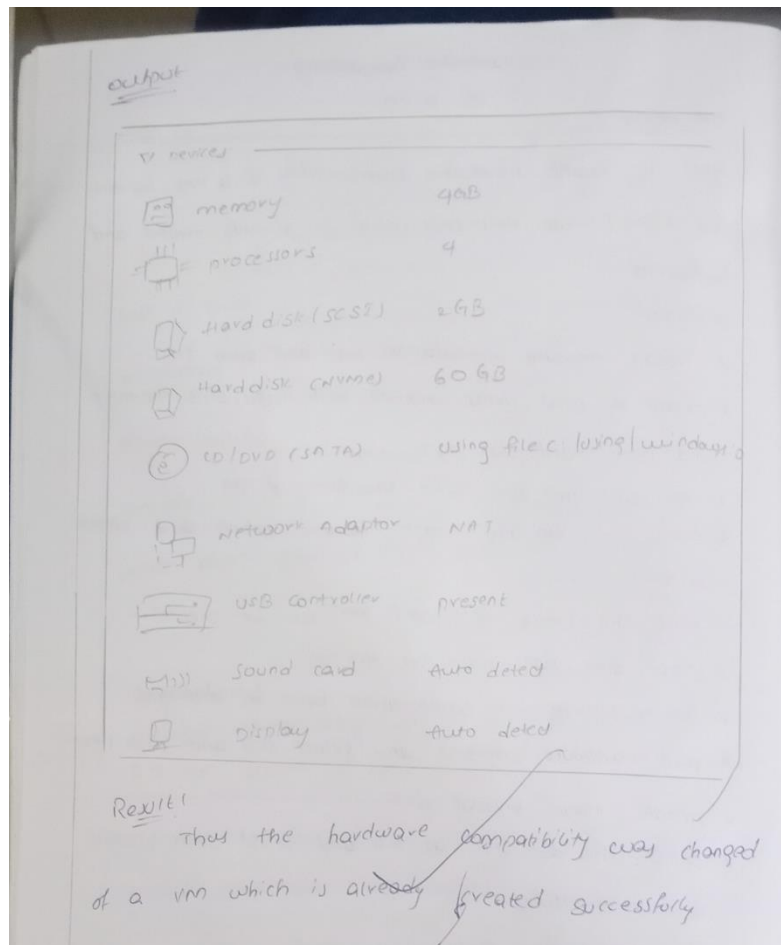 output
▽ Devices
memory 4GB
processors 4
Hard disk (SCSI) 2GB
Hard disk (NVMe) 60 GB
CD/DVD (SATA) using file c:/using/windows
Network Adaptor NAT
USB controller present
Sound card Auto detect
Display Auto detect
Result!
Thus the hardware compatibility was changed
of a vm which is already created successfully